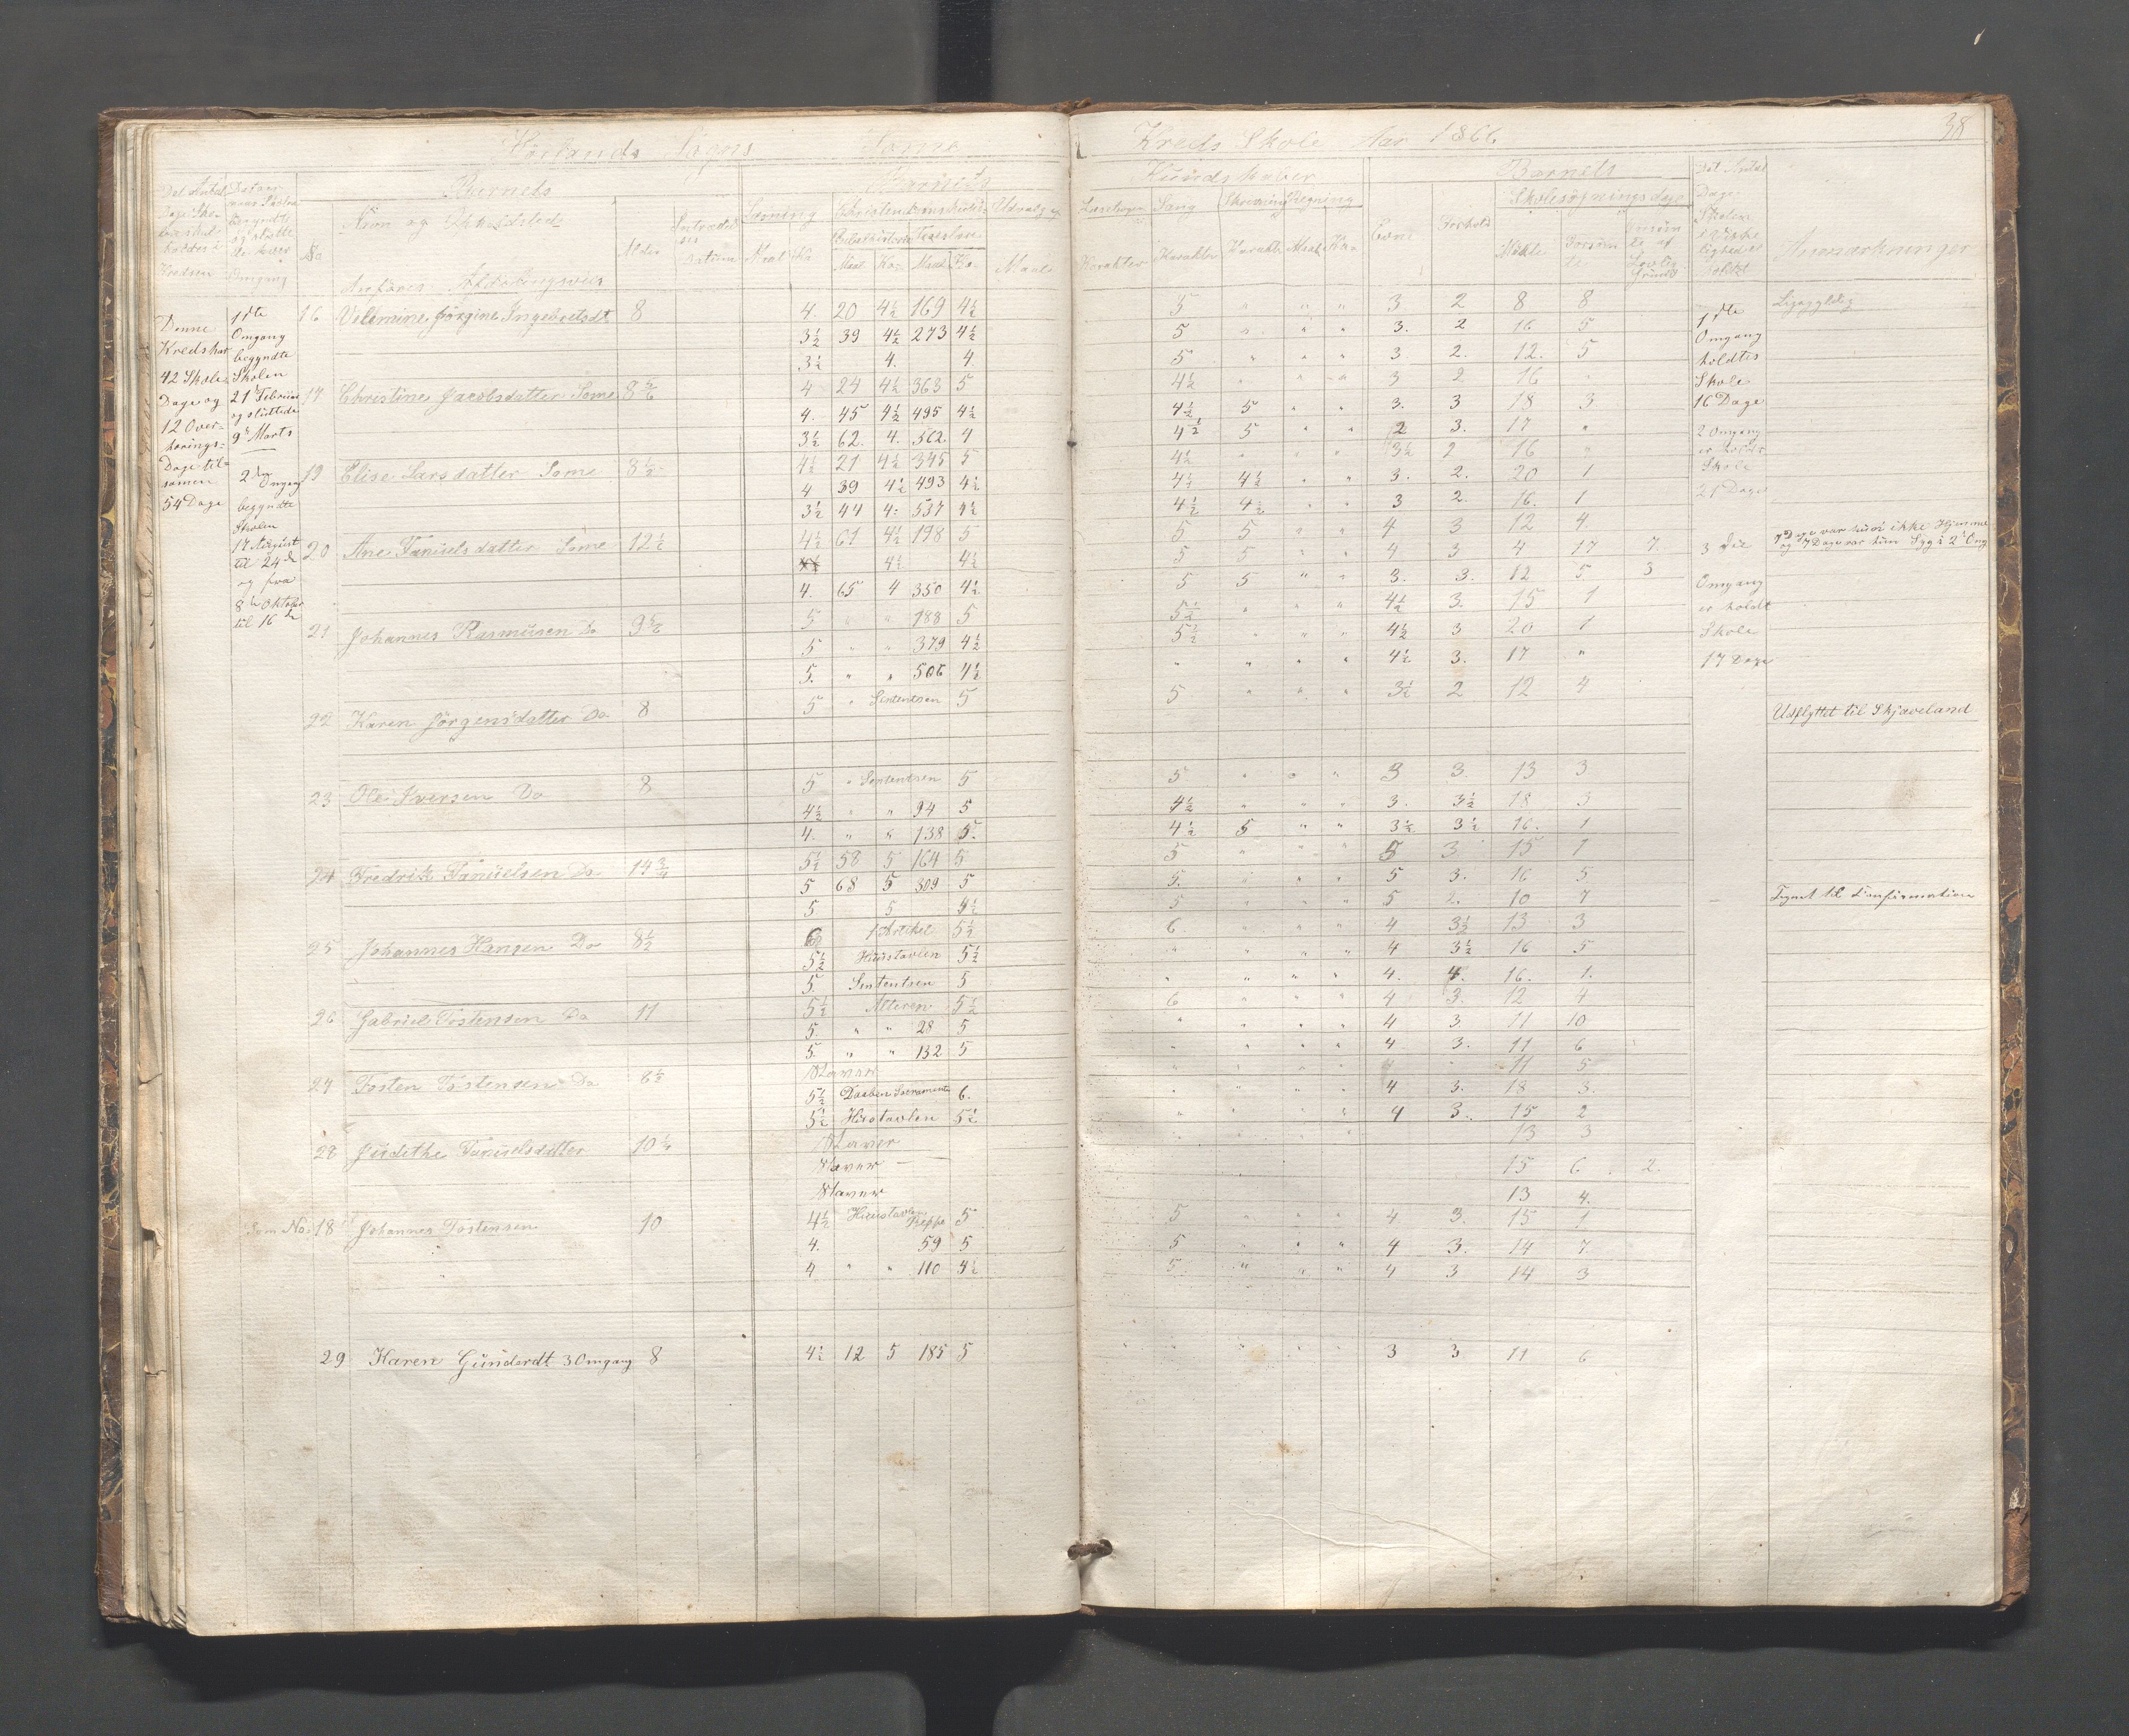 Hörlands Sogns Somme Kreds Skole Aar 1866 38
Det Antal Dage Skolen
Datum
No
Barnets
Navn og Opholdsted
Anføres Afdelingsviis
Alder
Datum
Læsning
Maal Ka
Barnets
Christendomskundskab
Bibelhistorie Troeslære
Maal Ka- Maal Ka-
Udvalg
Maal
Kundskaber
Læsebogen
Karakter
Sang
Karakter
Skrivning
Karakter
Regning
Maal Ka-
Evne
Forhold
Barnets
Skolesøgningsdage
Mødte
Forsømte
Forsømte af Lovlig Grund
Det Antal Dage Skolen holdt
Anmærkninger
Denne
Kreds har
42 Skole
Dage og
12 Over-
hørings-
Dage til-
samen
54 Dage
1ste
Omgang
begyndte
Skolen
21 Februar
og sluttede
9de Marts
2den
Omgang
begyndte
Skolen
17 August
til 24de
og fra
8de Oktober
til 16de
16 Velemine Jørgine Ingebretsdt 8 4. 20 4½ 169 4½ 5 " " " 3 2 8 8 Ligegyldig
3½ 39 4½ 273 4½ 5 " " " 3. 2 16 5
3½ 4. 4. 5 " " " 3 2. 12. 5
17 Christine Jacobsdatter Some 8 5/6 4 24 4½ 363 5 4½ " " " 3 2 16 "
4. 45 4½ 495 4½ 4½ 5 " " 3. 3 18 3
3½ 62. 4. 562. 4 4½ 5 " " 2 3. 17 "
19 Elise Larsdatter Some 8½ 4½ 21 4½ 345 5 4½ " " 3½ 2 16 "
4 39 4½ 493 4½ 4½ 4½ " " 3. 2. 20 1
3½ 44 4- 537 4½ 4½ 4½ " " 3 2. 16. 1
20 Ane Tanielsdatter Some 12½ 4½ 61 4½ 198 5 5 5 " " 4 3 12 4
4½ 4½ 5 5 " " 4 3 4 17 7.
4. 65 4 350 4½ 5 5 " " 3. 3. 12 5. 3
7 Dage var hun ikke Hjemme
og 7 Dage var hun Syg i 2d Omg
21 Johannes Rasmusen Do 9 5 " " 188 5 5½ " " " 4½ 3. 15 1
5 " " 379 4½ 5½ " " " 4½ 3 20 1
5. " " 506 4½ " " " " 4½ 3. 17 "
22 Karen Jørgensdatter Do 8 5 " Sententsen 5 5 " " " 3½ 2 12 4
Udflyttet til Skjæveland
23 Ole Iversen Do 8 5 " Sententsen 5 5 " " " 3 3 13 3
4½ " " 94 5 4½ " " " 3. 3½ 18 3
4. " " 138 5. 4½ 5 " " 3½ 3½ 16. 1
24 Fredrik Tanielsen Do 14¾ 5½ 58 5 164 5 5 " " " 5 3 15 1
5 68 5 309 5 5. " " " 5 3. 16 5
5 5 4½ 5 " " " 5 2. 10 7
Tegnet til Confirmation
25 Johannes Hansen Do 8½ 6 1 Artikel 5½ 6. " " " 4 3½ 13 3
5½ Huustavlen 5½ " " " " 4 3½ 16 5
5. Sententsen 5 " " " " 4. 4. 16. 1.
26 Gabriel Tostensen Do 11 5½ Alteren 5½ 6 " " " 4 3. 12 4
5. " " 28 5 " " " " 4 3 11 10
5. " " 132 5 " " " " 4. 3. 11 6
27 Tosten Tostensen Do 8½ Staver 11 5
5½ Daaben Sacramente 6. " " " " 4 3. 18 3.
5½ Hustavlen 5½ " " " " 4 3. 15 2
28 Judithe Tanielsdatter 10 Staver 13 3
Staver 15 6. 2.
Staver 13 4.
Som No 18 Johannes Tostensen 10 4½ Huustavlen 5 5 " " " 4 3. 15 1
4. 59 5 5 " " " 4 3. 14 7
4 " " 110 4½ 5. " " " 4 3 14 3
29 Karen Gunderdt 3 Omgang 8 4½ 12 5 185 5 " " " " " 3 3 11 6
1ste
Omgang
holdtes
Skole
16 Dage
2 Omgang
er holdt
Skole
21 Dage
3die
Omgang
er holdt
Skole
17 Dage